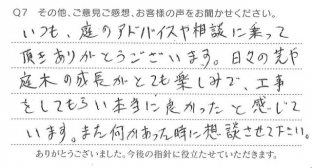 Q7 その他、ご意見ご感想、お客様の声をお聞かせください。
いつも、庭のアドバイスや相談に乗って
頂きありがとうございます。日々の花や
庭木の成長がとても楽しみで、工事
をしてもらい本当に良かったと感じて
います。また何かあった時に相談させて下さい。
ありがとうございました。今後の指針に役立たせていただきます。